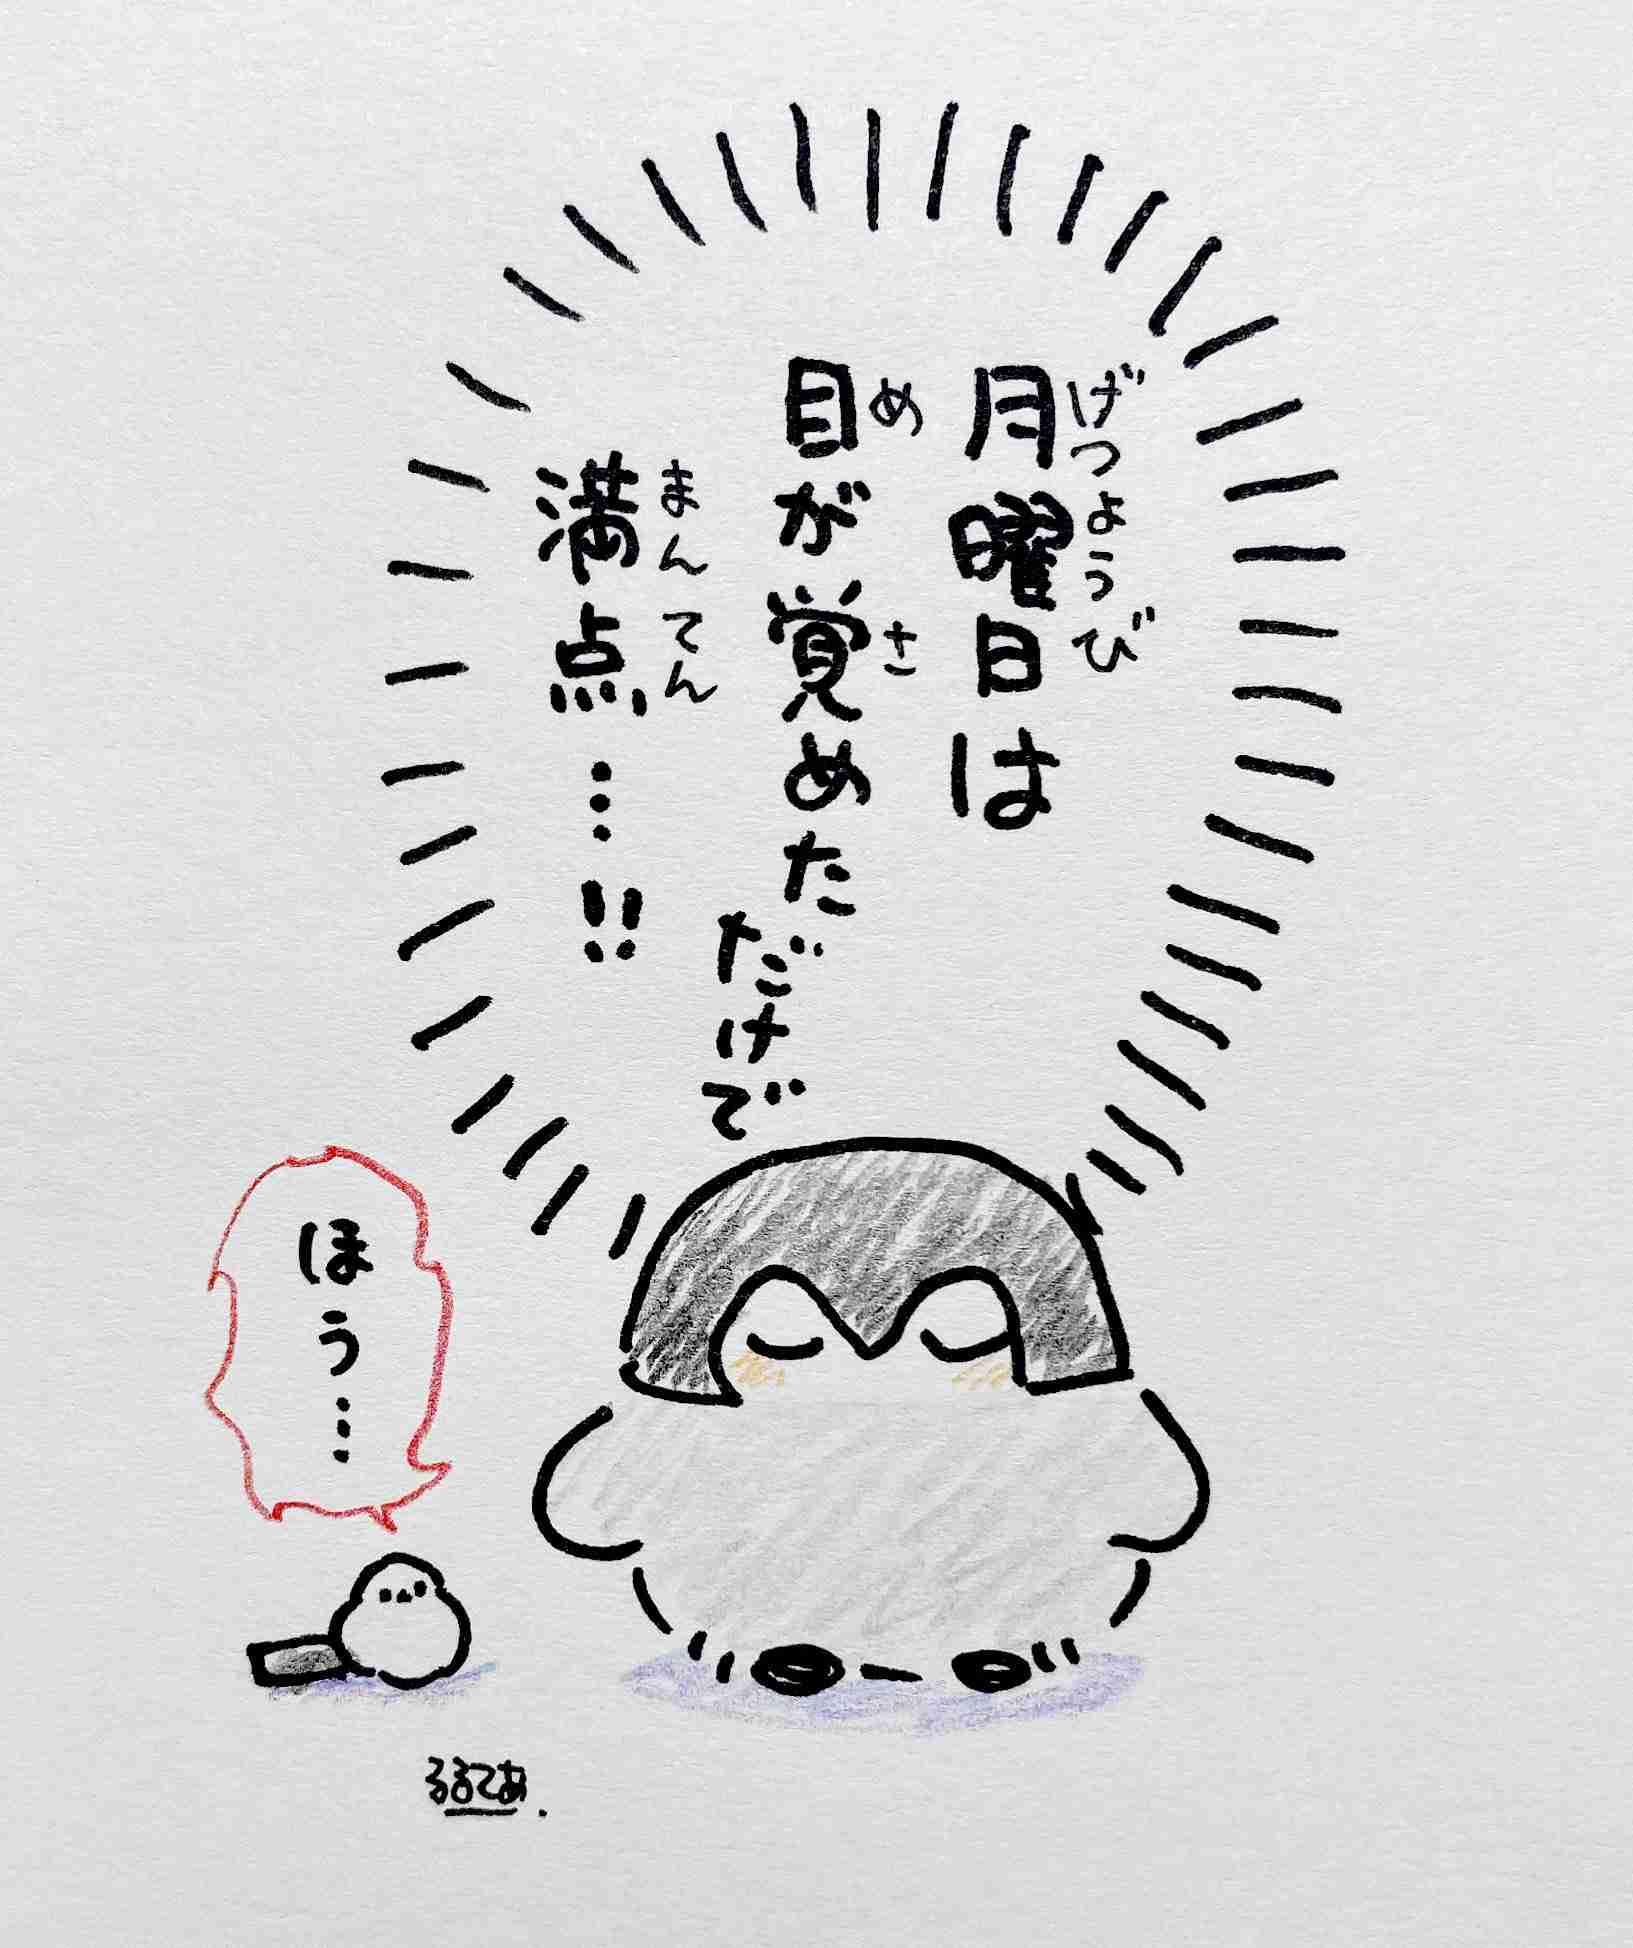 月曜日は
げつようび
目が覚めた
め さ
だけで
満点…!!
まんてん
ほう…
るるてあ.